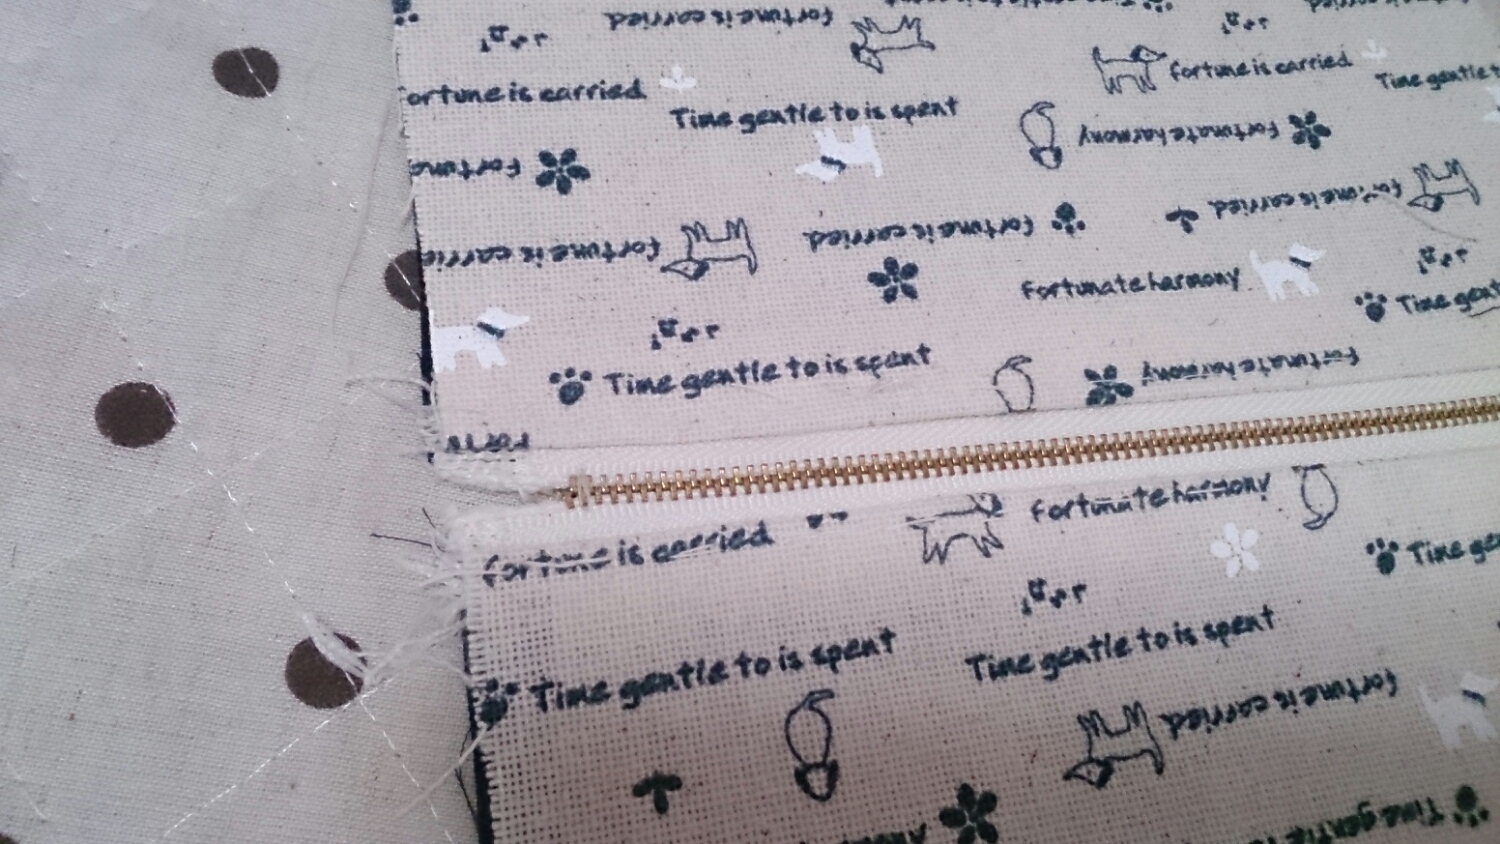 fortune is carried
fortune is carried
ortune is carried
Time gentle to is spent
Time gentle t
Fortunate harmony
Fortun
fortune is carried
fortune is carried
fortune is carrie
Fortunate harmony
Time gent
Time gentle to is spent
Fortunate harmony
Fortunate harmony
fortune is carried
Time ge
Time gentle to is spent
Time gentle to is spent
fortune is carried
Time gentle to